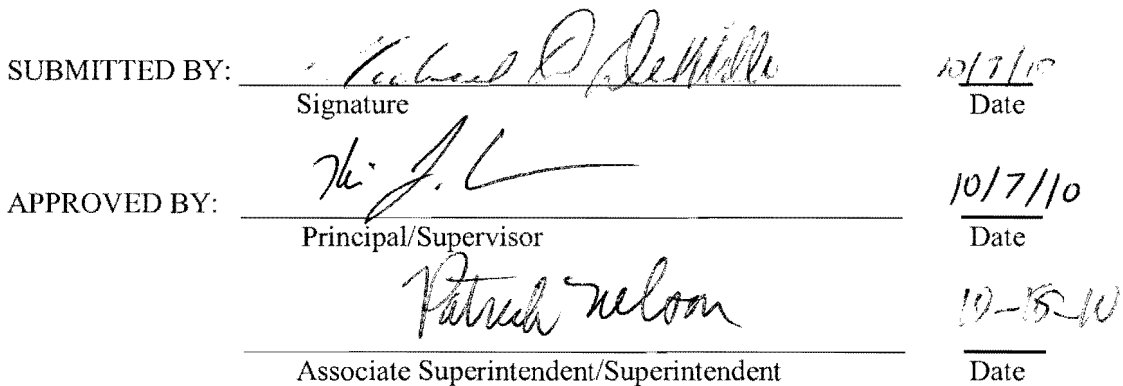 SUBMITTED BY: Michael D DeMille 10/7/10
Signature Date
APPROVED BY: J. 10/7/10
Principal/Supervisor Date
Patrick Nelson 10-15-10
Associate Superintendent/Superintendent Date